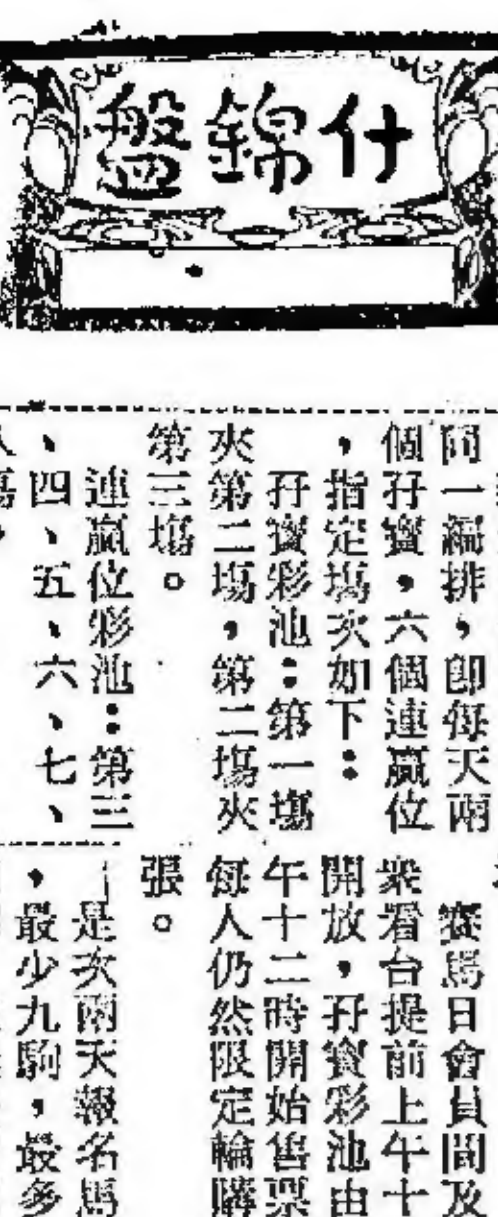 什錦盤
同一編排，即每天兩
個孖寳，六個連贏位
，指定塲次如下：
孖寳彩池：第一塲
夾第二塲，第二塲夾
第三塲。
連贏位彩池：第三
、四、五、六、七、
賽馬日會員間及
衆看台提前上午十
開放，孖寳彩池由
午十二時開始售票
每人仍然限定輪購
張。
是次兩天報名馬
，最少九駒，最多